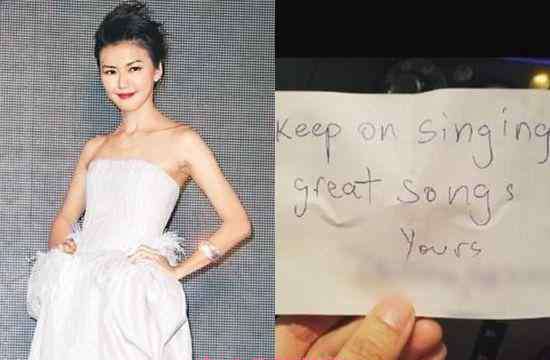 Keep on singing
great songs
Yours